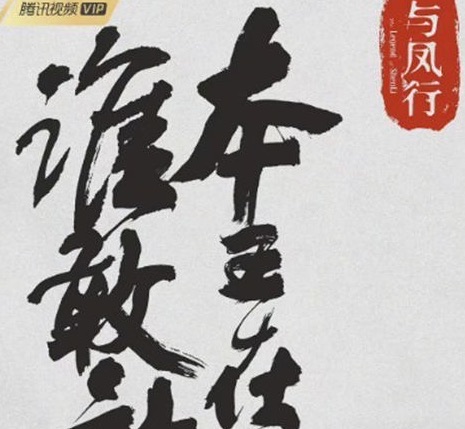 腾讯视频 VIP
与凤行
The Legend of ShenLi
本王在
谁敢